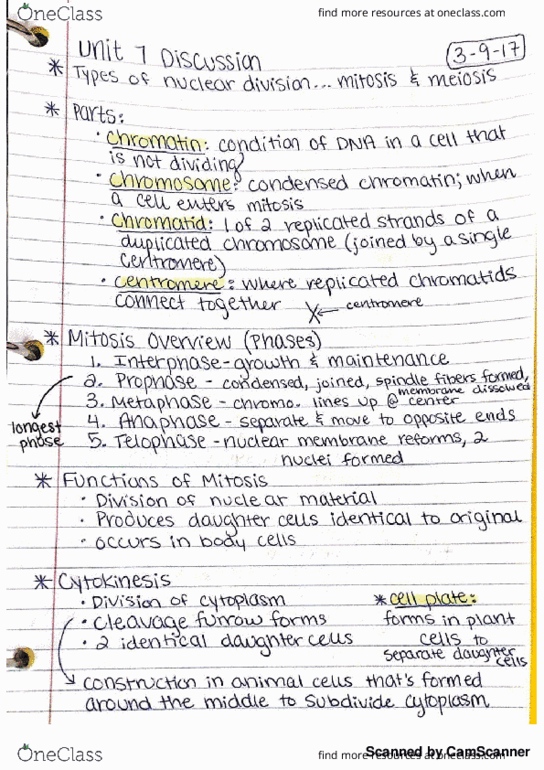 OneClass
find more resources at oneclass.com
Unit 7 Discussion
3-9-17
* Types of nuclear division... mitosis & meiosis
* Parts:
· chromatin: condition of DNA in a cell that
is not dividing
· chromosome: condensed chromatin; when
a cell enters mitosis
· chromatid: 1 of 2 replicated strands of a
duplicated chromosome (joined by a single
centromere)
· centromere: where replicated chromatids
connect together
X ← centromere
* Mitosis Overview (Phases)
1. Interphase - growth & maintenance
2. Prophase - condensed, joined, spindle fibers formed,
membrane dissolved
3. Metaphase - chromo. lines up @ center
4. Anaphase - separate & move to opposite ends
longest
phase
5. Telophase - nuclear membrane reforms, 2
nuclei formed
* Functions of Mitosis
· Division of nuclear material
· Produces daughter cells identical to original
· occurs in body cells
* Cytokinesis
· Division of cytoplasm
· Cleavage furrow forms
· 2 identical daughter cells
* cell plate:
forms in plant
cells to
separate daughter
cells
construction in animal cells that's formed
around the middle to subdivide cytoplasm
OneClass
find more resources at oneclass.com
Scanned by CamScanner